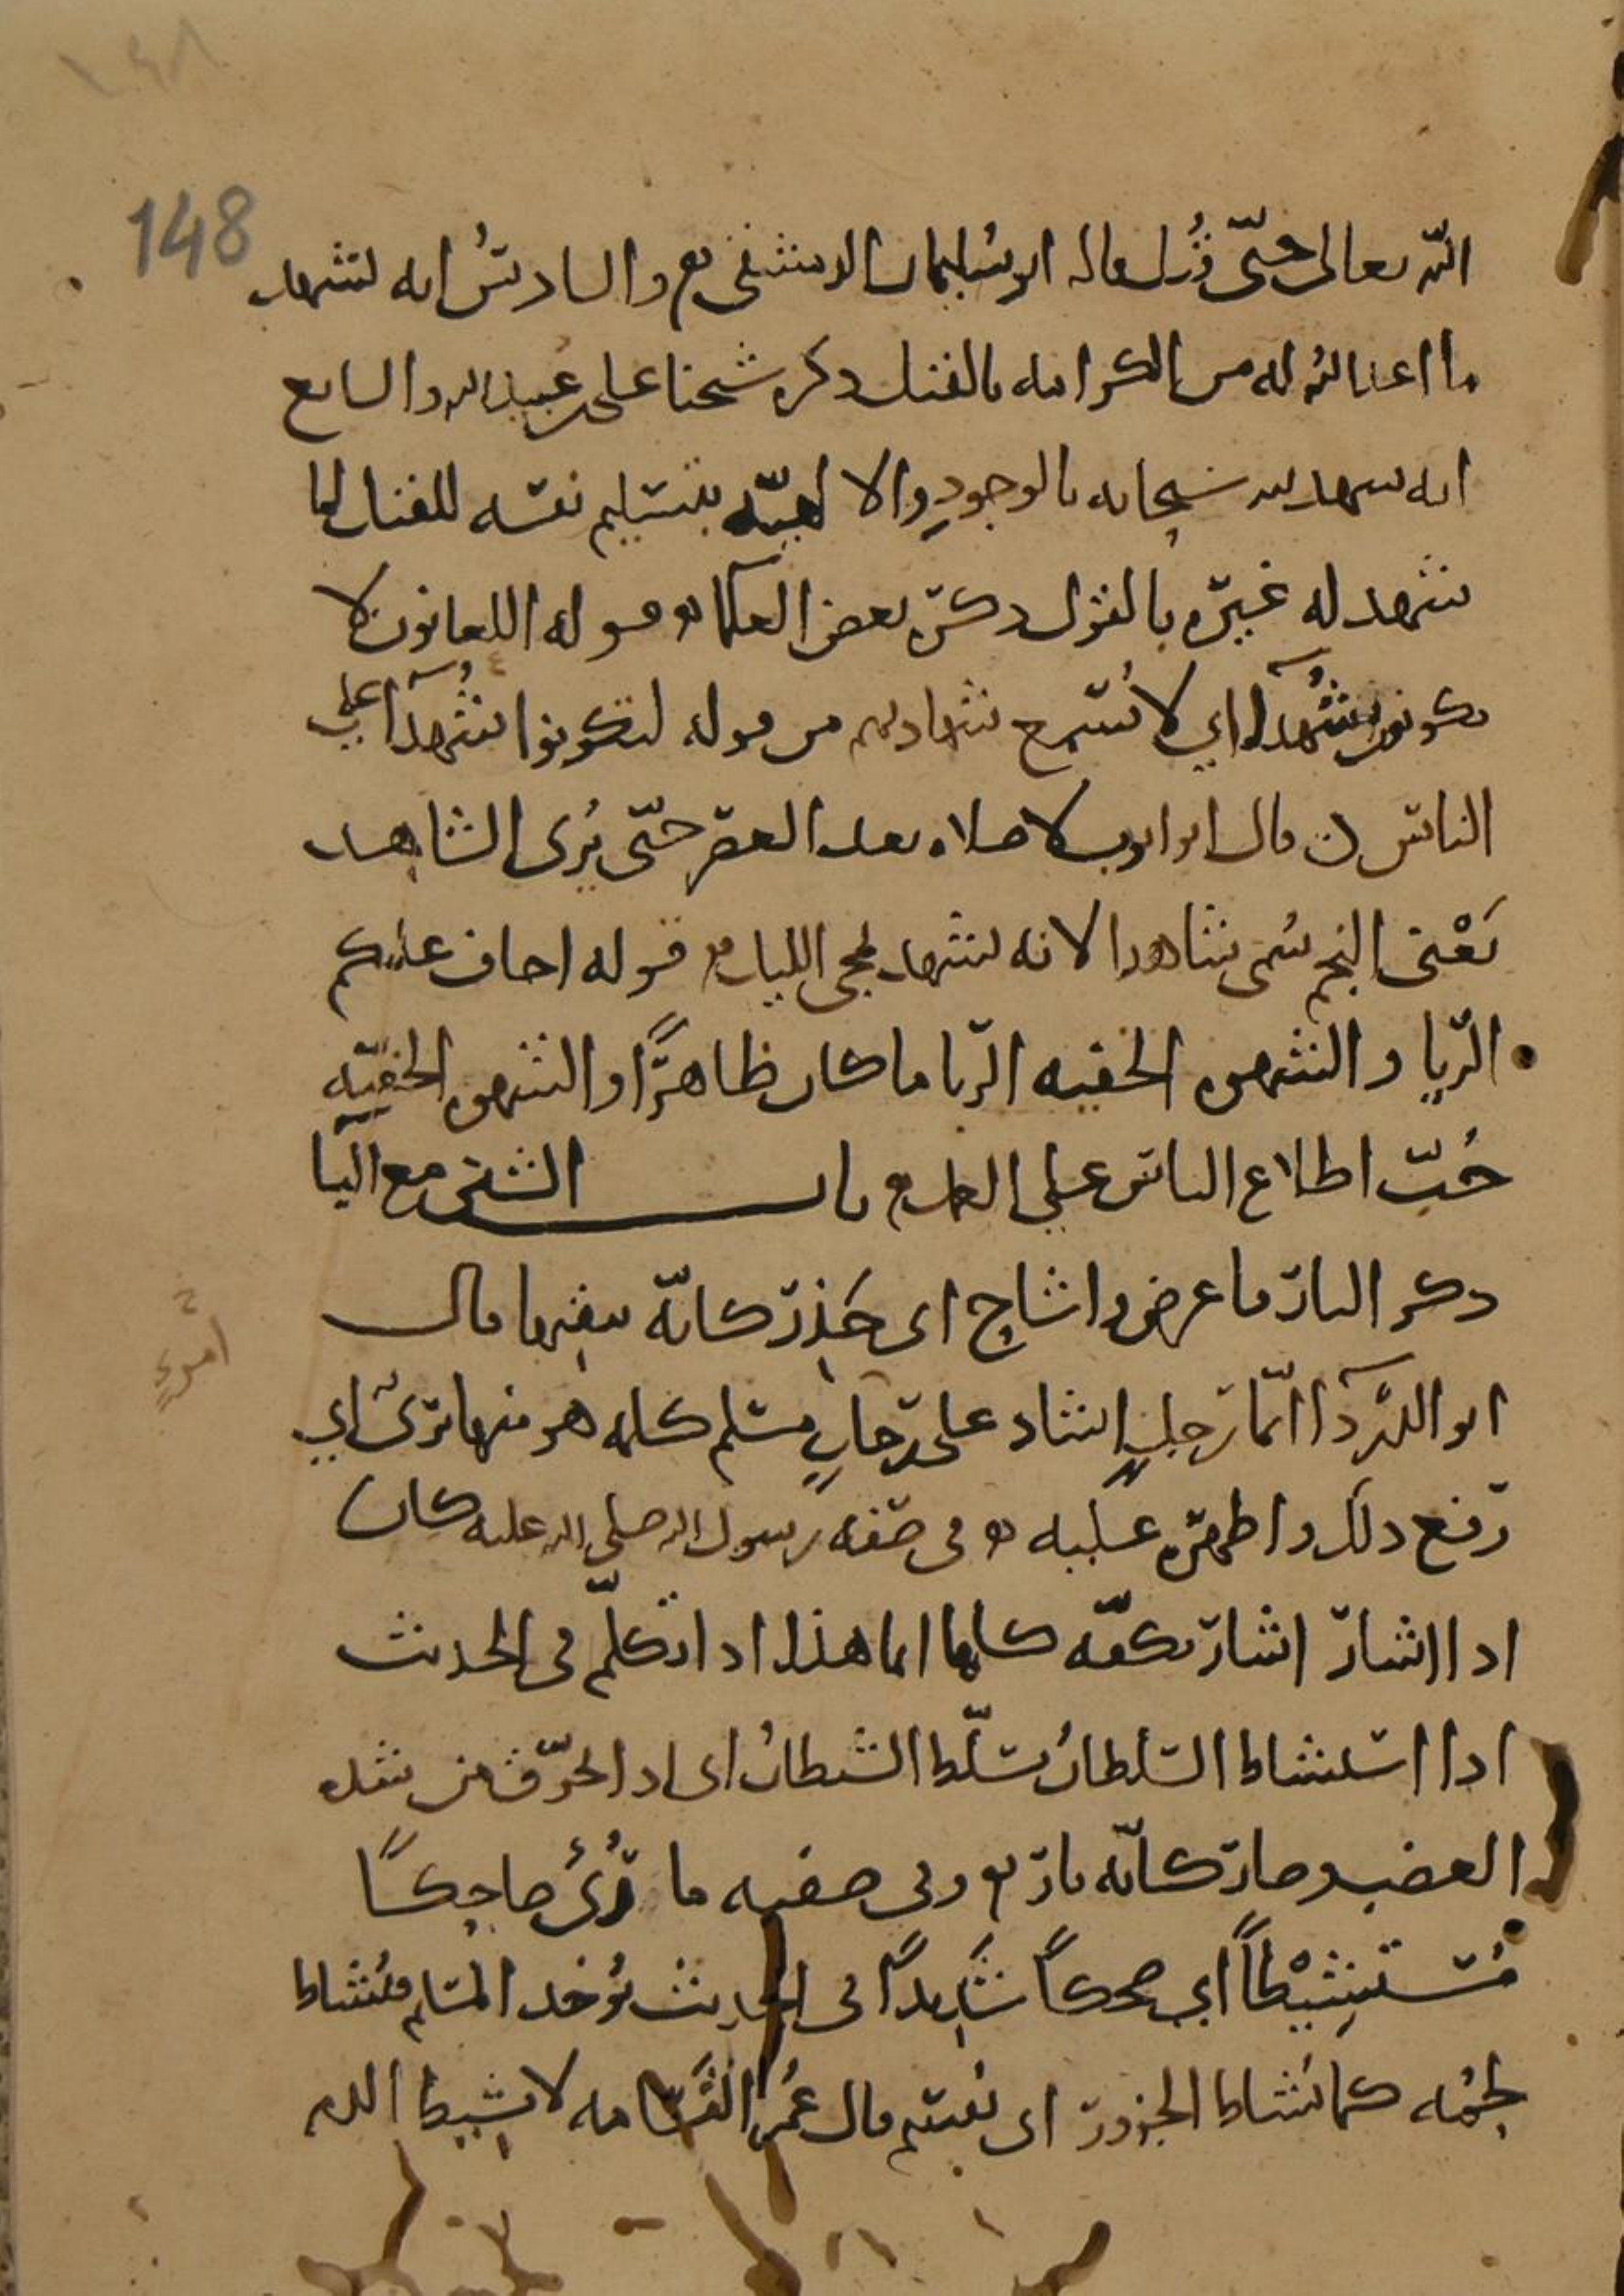 148
الله تعالى حتّى قُتل قاله ابو سُليمان الدمشقي والسادسُ انه لتشهد
ما اعد الله له من الكرامه بالقتل ذكره شيخنا على بن عبيد الله والسابع
انه شهد لله سبحانه بالوجودِ والالهيّه بتسليم نفسه للقتل لما
شهد له غيره بالقول ذكره بعض العلما قوله اللعانون لا
يكونون شُهدآ اي لا تُسمع شهادتهم من قوله لتكونوا شُهدآ على
الناس قال ابو ايوب لا صلاه بعد العصر حتّى يُرى الشاهد
يَعْنى النجم سُمى شاهدا لانه لشهد لمجى الليل قوله اخاف عليكم
الرّيا والشهوه الخفيه الرّيا ما كان ظاهرًا والشهوه الخفيّه
حُبّ اطلاع الناس على العمل باب الشين مع اليا
ذكر النار فاعرض واشاح اى حَذِر كانّه ينظر اليها قال
ابو الدّردآ ايّما رجلٍ اشاد على رجلٍ مسلم كلمه هو منها برئ اي
رفع ذلك واظهره عليه فى صفه رسول الله صلى الله عليه كان
اذا اشار اشار بكفّه كلها اما هذا اذا تكلّم فى الحديث
اذا استشاط السّلطانُ تسلّط الشيطانُ اى اذا تحرّق من شده
الغضب وصار كانّه نار وفى صفته ما رُئىَ ضاحِكًا
مُسْتَشِيْطًا اي ضحكًا شَدِيدًا فى الحديث يُوخذ المسلم فيُشاط
لحمُه كما تُشاط الجزور اى يُقسّم قال عُمر القَسَامه لا تُشِيط الدم
امرءٍ